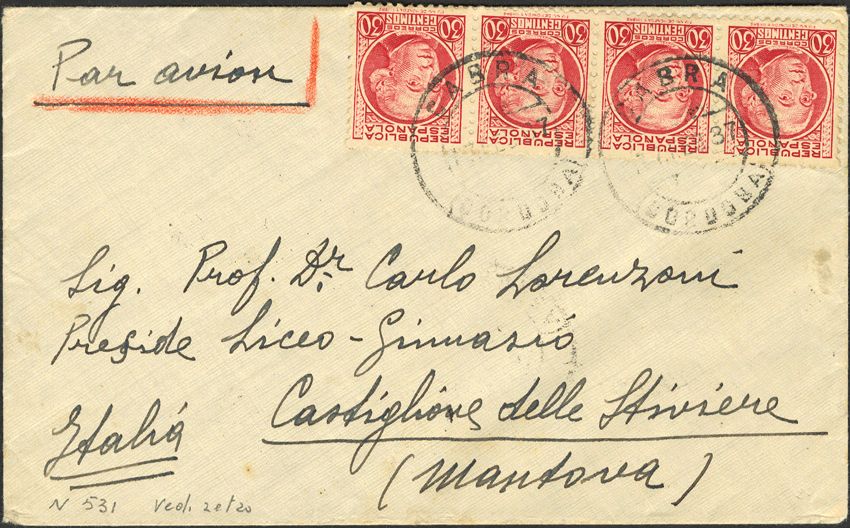 Par avion
30 CORREOS CENTIMOS 30
REPUBLICA ESPAÑOLA
30 CORREOS CENTIMOS 30
REPUBLICA ESPAÑOLA
30 CORREOS CENTIMOS 30
REPUBLICA ESPAÑOLA
30 CORREOS CENTIMOS 30
REPUBLICA ESPAÑOLA
CABRA
(CORDOBA)
CABRA
37
(CORDOBA)
Sig. Prof. Dr. Carlo Lorenzoni
Preside Liceo-Ginnasio
Castiglione delle Stiviere
Italiá
(Mantova)
N 531 Vedi retro